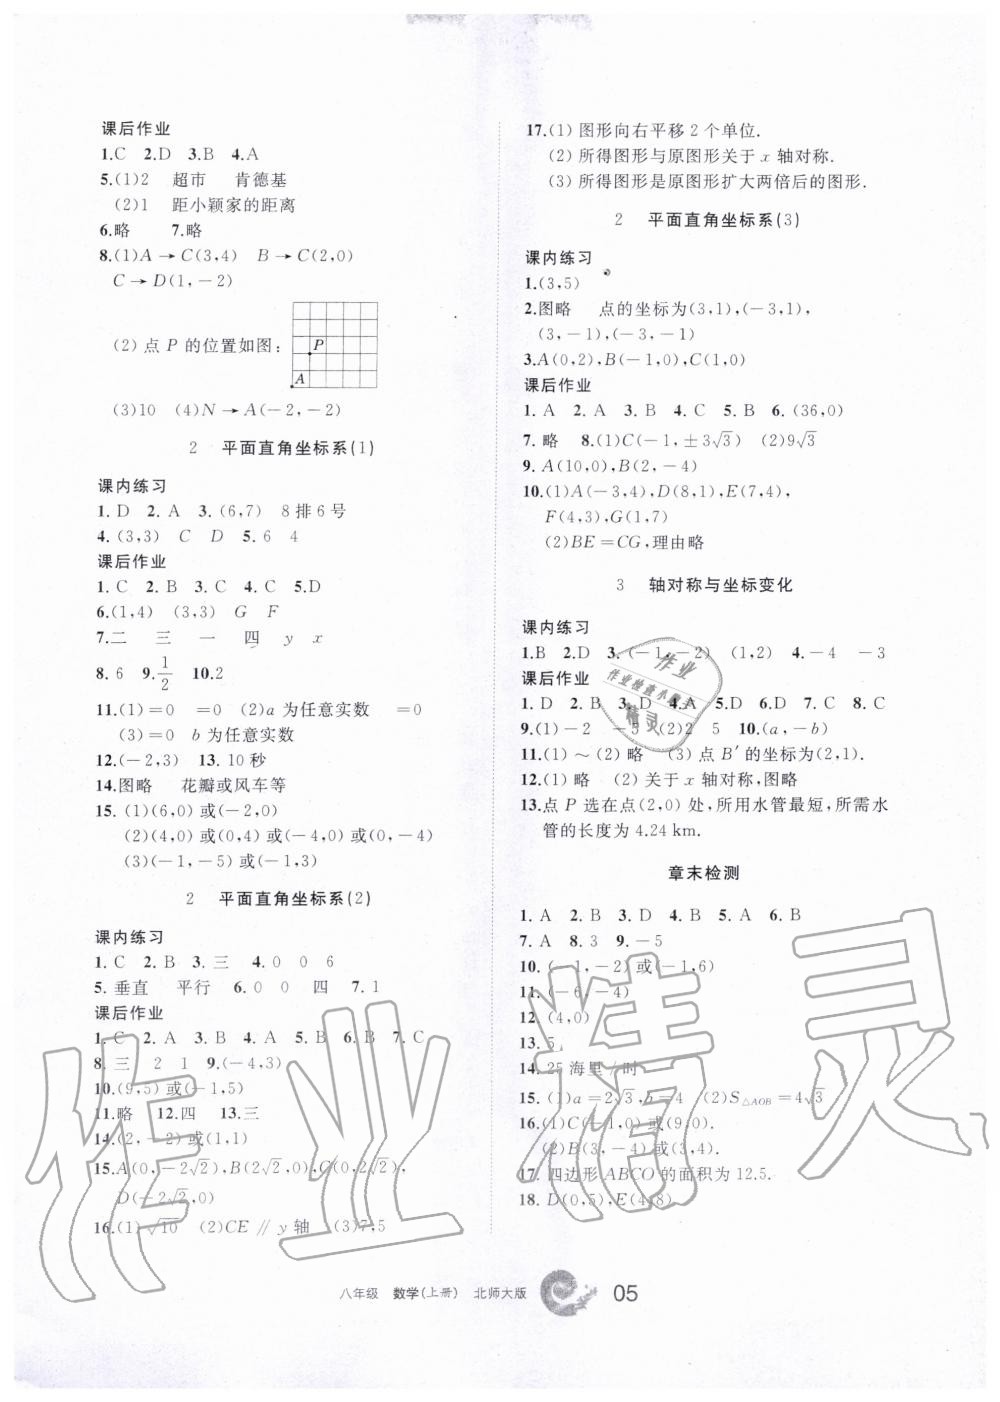 课后作业
1.C 2.D 3.B 4.A
5.(1)2 超市 肯德基
(2)1 距小颖家的距离
6.略 7.略
8.(1)A→C(3,4) B→C(2,0)
C→D(1,-2)
(2)点 P 的位置如图:
P
A
(3)10 (4)N→A(-2,-2)
2 平面直角坐标系(1)
课内练习
1. D 2. A 3. (6,7) 8排6号
4. (3,3) C D 5. 6 4
课后作业
1. C 2. B 3. C 4. C 5.D
6.(1,4) (3,3) G F
7.二 三 一 四 y x
8. 6 9. 1/2 10.2
11.(1)=0 =0 (2)a 为任意实数 =0
(3)=0 b 为任意实数
12.(-2,3) 13. 10秒
14.图略 花瓣或风车等
15. (1)(6,0)或(-2,0)
(2)(4,0)或(0,4)或(-4,0)或(0,-4)
(3)(-1,-5)或(-1,3)
2 平面直角坐标系(2)
课内练习
1. C 2. B 3. 三 4. 0 0 6
5. 垂直 平行 6. 0 0 四 7. 1
课后作业
1. C 2. A 3. B 4. A 5. B 6. B 7. C
8. 三 2 1 9.(-4,3)
10.(9,5)或(-1,5)
11.略 12.四 13.三
14.(2,-2)或(1,1)
15.A(0,-2√2),B(2√2,0),C(0,2√2),
D(-2√2,0)
16.(1)√10 (2)CE∥y轴 (3)7,5
17.(1) 图形向右平移 2 个单位.
(2) 所得图形与原图形关于 x 轴对称.
(3) 所得图形是原图形扩大两倍后的图形.
2 平面直角坐标系(3)
课内练习
1.(3,5)
2.图略 点的坐标为(3,1),(-3,1),
(3,-1),(-3,-1)
3.A(0,2),B(-1,0),C(1,0)
课后作业
1. A 2. A 3. B 4. C 5. B 6. (36,0)
7. 略 8.(1)C(-1,±3√3) (2)9√3
9. A(10,0),B(2,-4)
10.(1)A(-3,4),D(8,1),E(7,4),
F(4,3),G(1,7)
(2)BE=CG,理由略
3 轴对称与坐标变化
课内练习
1.B 2.D 3. (-1,-2) (1,2) 4. -4 -3
课后作业
1. D 2. B 3. D 4.A 5. D 6. D 7. C 8. C
9.(1)-2 -5 (2)2 5 10.(a,-b)
11.(1)~(2)略 (3)点 B′的坐标为(2,1).
12.(1)略 (2)关于 x 轴对称,图略
13.点 P 选在点(2,0)处,所用水管最短,所需水
管的长度为4.24 km.
章末检测
1. A 2. B 3. D 4. B 5. A 6. B
7. A 8. 3 9. -5
10. (-1,-2)或(-1,6)
11. (-6,-4)
12. (4,0)
13. 5
14. 25海里/时
15. (1)a=2√3,b=4 (2)S△AOB=4√3
16.(1)C(-1,0)或(9,0).
(2)B(3,-4)或(3,4).
17. 四边形 ABCO 的面积为 12.5.
18. D(0,5),E(4,8)
作业
作业检查小
精灵
作业精灵
八年级 数学(上册) 北师大版 05